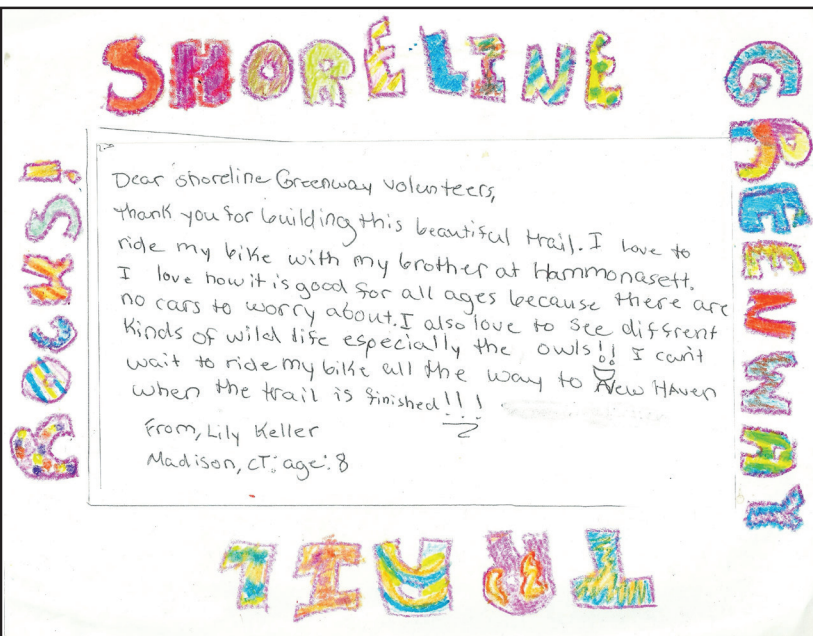 SHORELINE
GREENWAY
TRAIL
ROCKS!
Dear shoreline Greenway volunteers,
thank you for building this beautiful trail. I love to
ride my bike with my brother at Hammonasett.
I love how it is good for all ages because there are
no cars to worry about. I also love to see diffsrent
kinds of wild life especially the owls!! I can't
wait to ride my bike all the way to New HAven
when the trail is finished!!!
From, Lily Keller
Madison, CT. age: 8